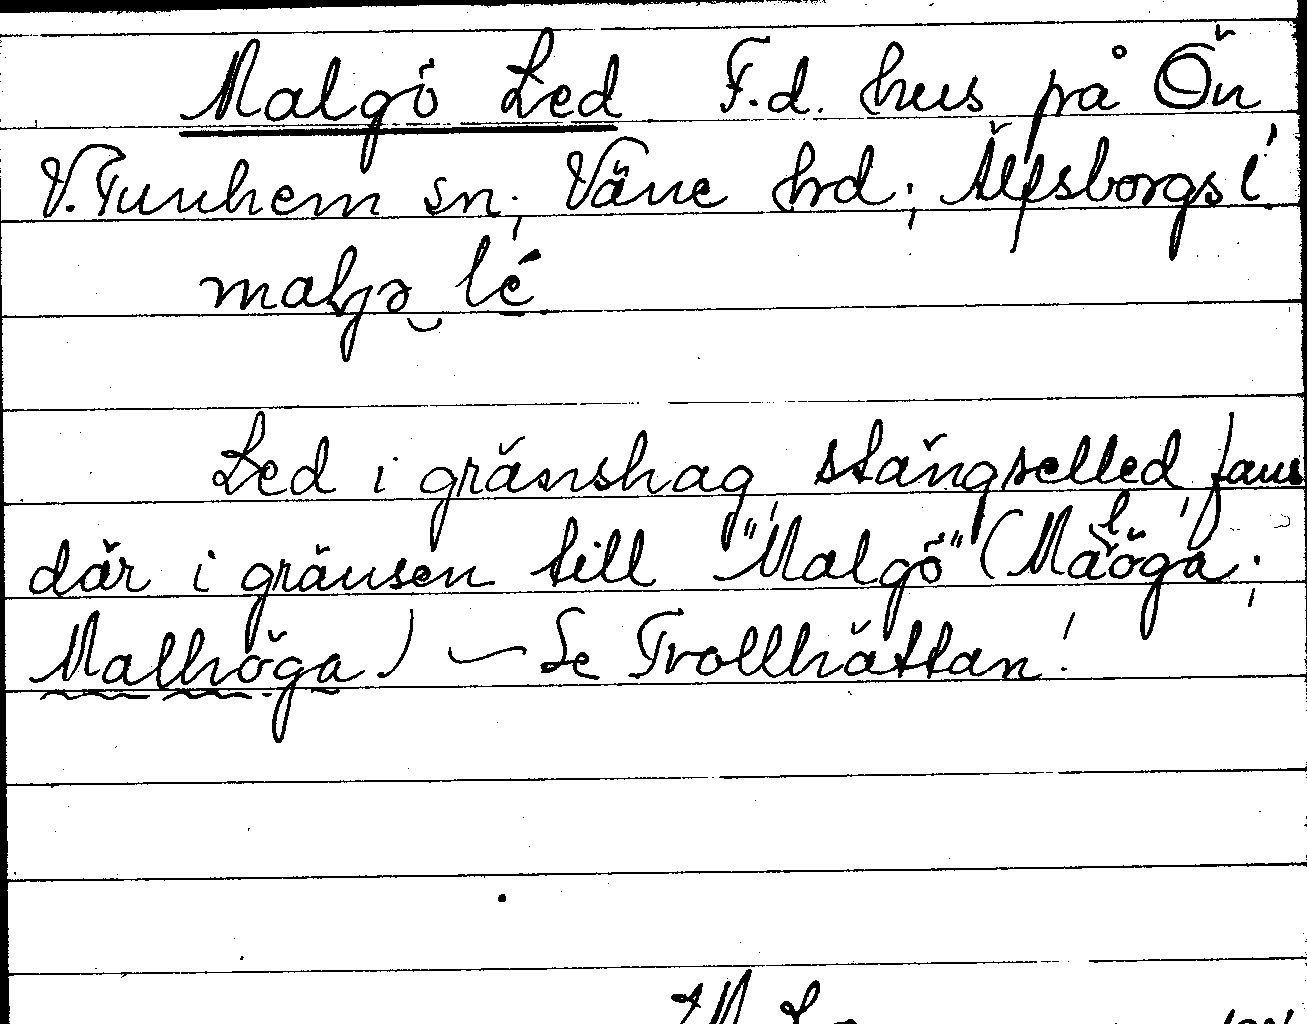 Malgö Led F.d. hus på Ön
V. Tunhem sn; Väne hrd; Älfsborgs l.
maljə lé
Led i gränshag, stängselled, fans
där i gränsen till "Malgö" (Malöga;
Malhöga) — Se Trollhättan!